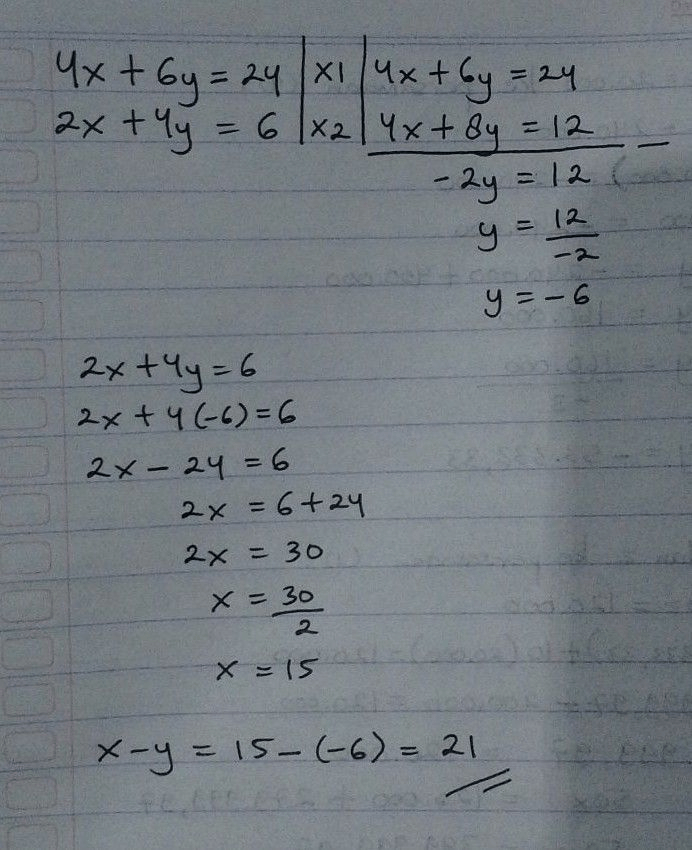 4x + 6y = 24 | x1 | 4x + 6y = 24
2x + 4y = 6 | x2 | 4x + 8y = 12 −
-2y = 12
y = 12/-2
y = -6
2x + 4y = 6
2x + 4(-6) = 6
2x - 24 = 6
2x = 6 + 24
2x = 30
x = 30/2
x = 15
x - y = 15 - (-6) = 21